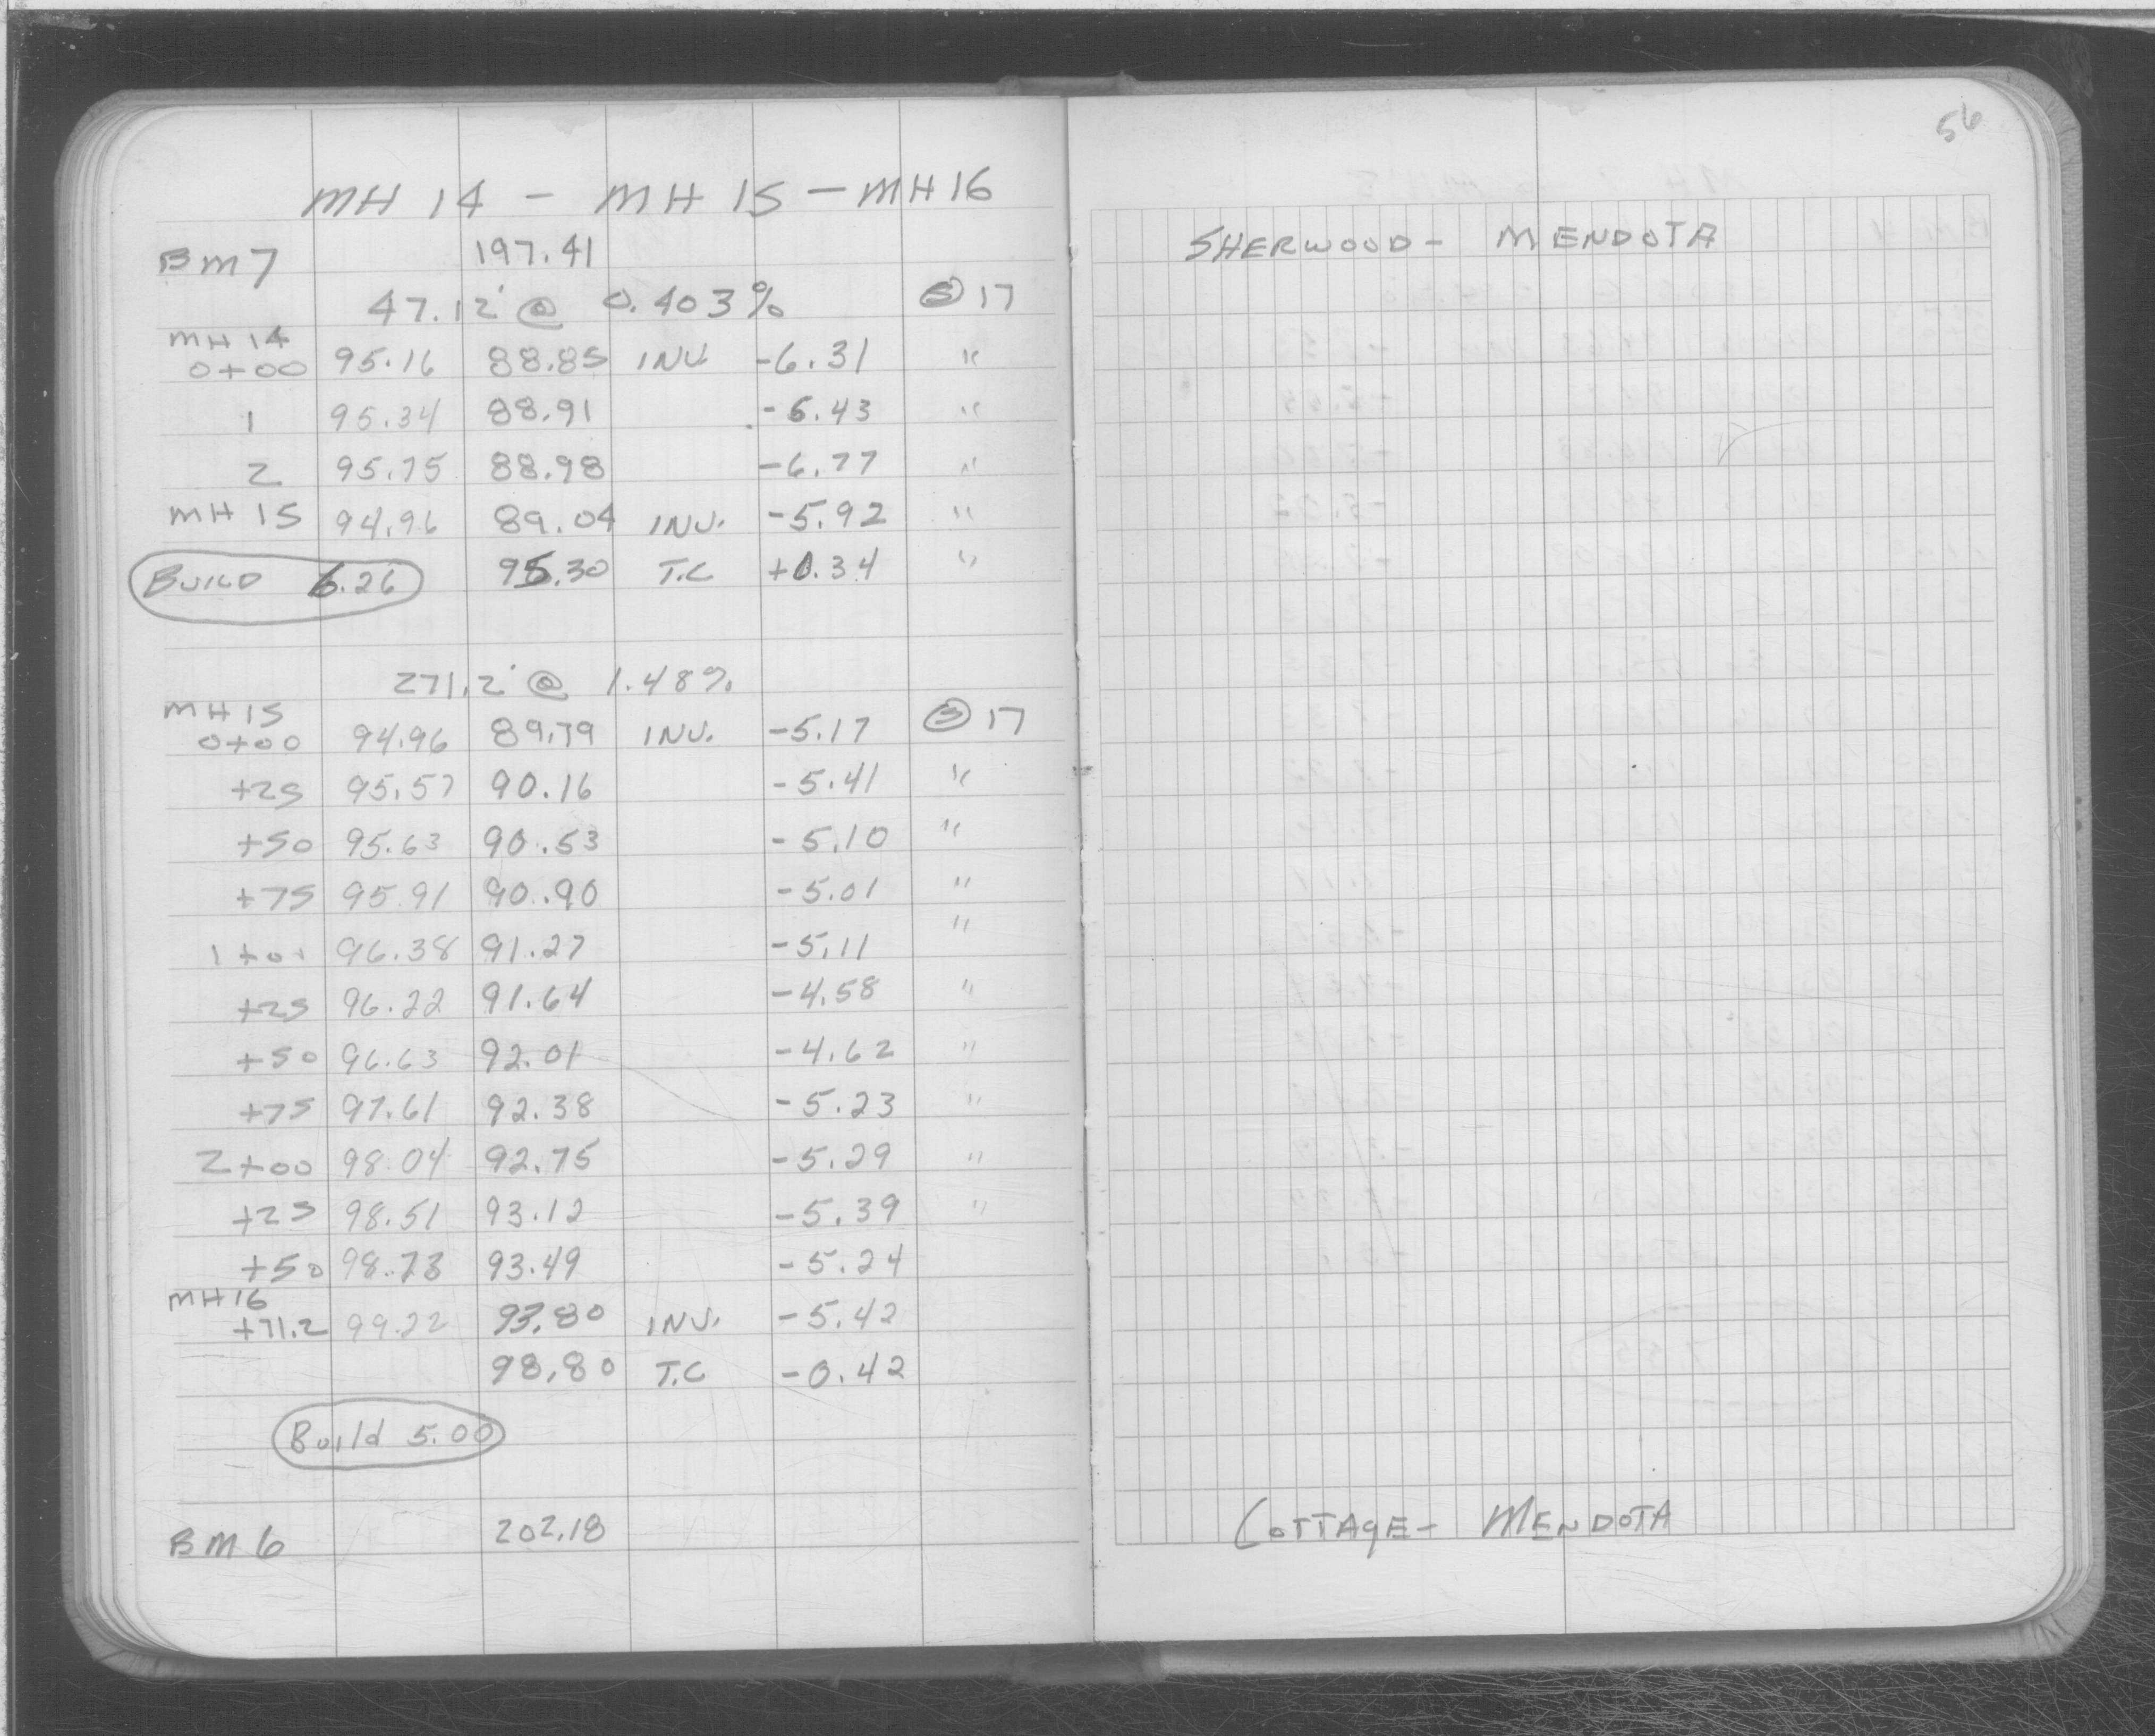 56
MH 14 - MH 15 - MH 16
BM 7 197.41 SHERWOOD - MENDOTA
47.12' @ 0.403% Ⓢ 17
MH 14
0+00 95.16 88.85 INV -6.31 "
1 95.34 88.91 -6.43 "
2 95.75 88.98 -6.77 "
MH 15 94.96 89.04 INV. -5.92 "
BUILD 6.26 95.30 T.C +0.34 "
271.2' @ 1.48%
MH 15
0+00 94.96 89.79 INV. -5.17 Ⓢ 17
+25 95.57 90.16 -5.41 "
+50 95.63 90.53 -5.10 "
+75 95.91 90.90 -5.01 "
1+00 96.38 91.27 -5.11 "
+25 96.22 91.64 -4.58 "
+50 96.63 92.01 -4.62 "
+75 97.61 92.38 -5.23 "
2+00 98.04 92.75 -5.29 "
+25 98.51 93.12 -5.39 "
+50 98.73 93.49 -5.24
MH 16
+71.2 99.22 93.80 INV. -5.42
98.80 T.C -0.42
Build 5.00
BM 6 202.18 COTTAGE - MENDOTA